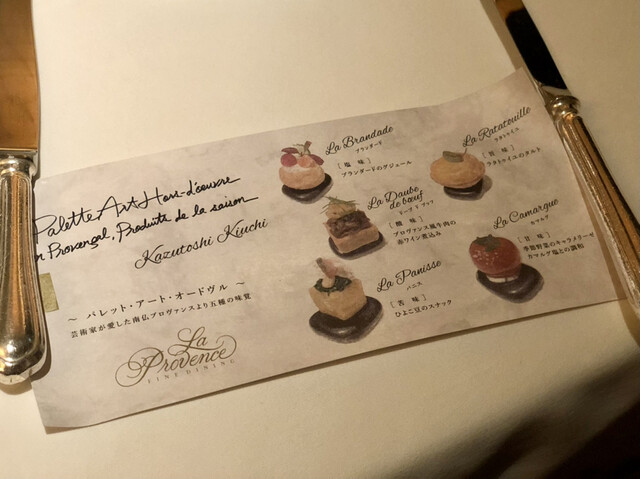 Palette Art Hors-d'œuvre
Provençal, Produits de la saison
Kazutoshi Kiuchi
～ パレット・アート・オードヴル ～
芸術家が愛した南仏プロヴァンスより五種の味覚
La
Provence
FINE DINING
La Brandade
ブランダード
[塩 味]
ブランダードのグジェール
La Ratatouille
ラタトゥイユ
[旨 味]
ラタトゥイユのタルト
La Daube
de bœuf
ドーブ ド ブッフ
[酸 味]
プロヴァンス風牛肉の
赤ワイン煮込み
La Camargue
カマルグ
[甘 味]
季節野菜のキャラメリーゼ
カマルグ塩との調和
La Panisse
パニス
[苦 味]
ひよこ豆のスナック